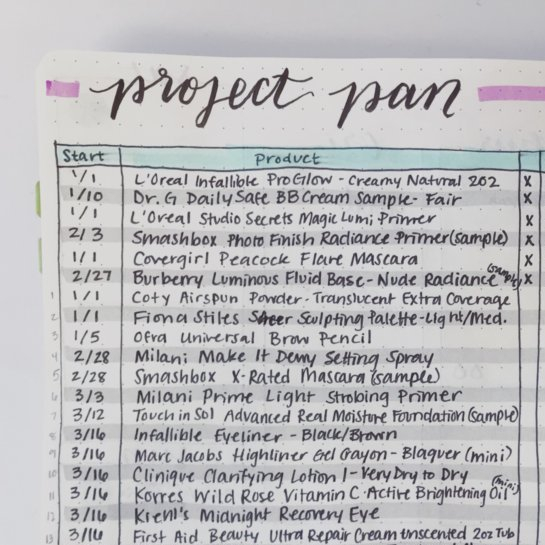 project pan
Start Product
1/1 L'Oreal Infallible ProGlow - Creamy Natural 202 x
1/10 Dr. G Daily Safe BB Cream Sample - Fair x
1/1 L'Oreal Studio Secrets Magic Lumi Primer x
2/3 Smashbox Photo Finish Radiance Primer (sample) x
1/1 Covergirl Peacock Flare Mascara x
2/27 Burberry Luminous Fluid Base - Nude Radiance (sample) x
1 1/1 Coty Airspun Powder - Translucent Extra Coverage
2 1/1 Fiona Stiles Sheer Sculpting Palette - Light/Med.
3 1/5 Ofra Universal Brow Pencil
4 2/28 Milani Make It Dewy Setting Spray
5 2/28 Smashbox X-Rated Mascara (sample)
6 3/3 Milani Prime Light Strobing Primer
7 3/12 Touch in Sol Advanced Real Moisture Foundation (sample)
8 3/16 Infallible Eyeliner - Black/Brown
9 3/16 Marc Jacobs Highliner Gel Crayon - Blaquer (mini)
10 3/16 Clinique Clarifying Lotion 1 - Very Dry to Dry
11 3/16 Korres Wild Rose Vitamin C Active Brightening Oil (mini)
12 3/16 Kiehl's Midnight Recovery Eye
13 3/16 First Aid Beauty Ultra Repair Cream Unscented 2oz Tub